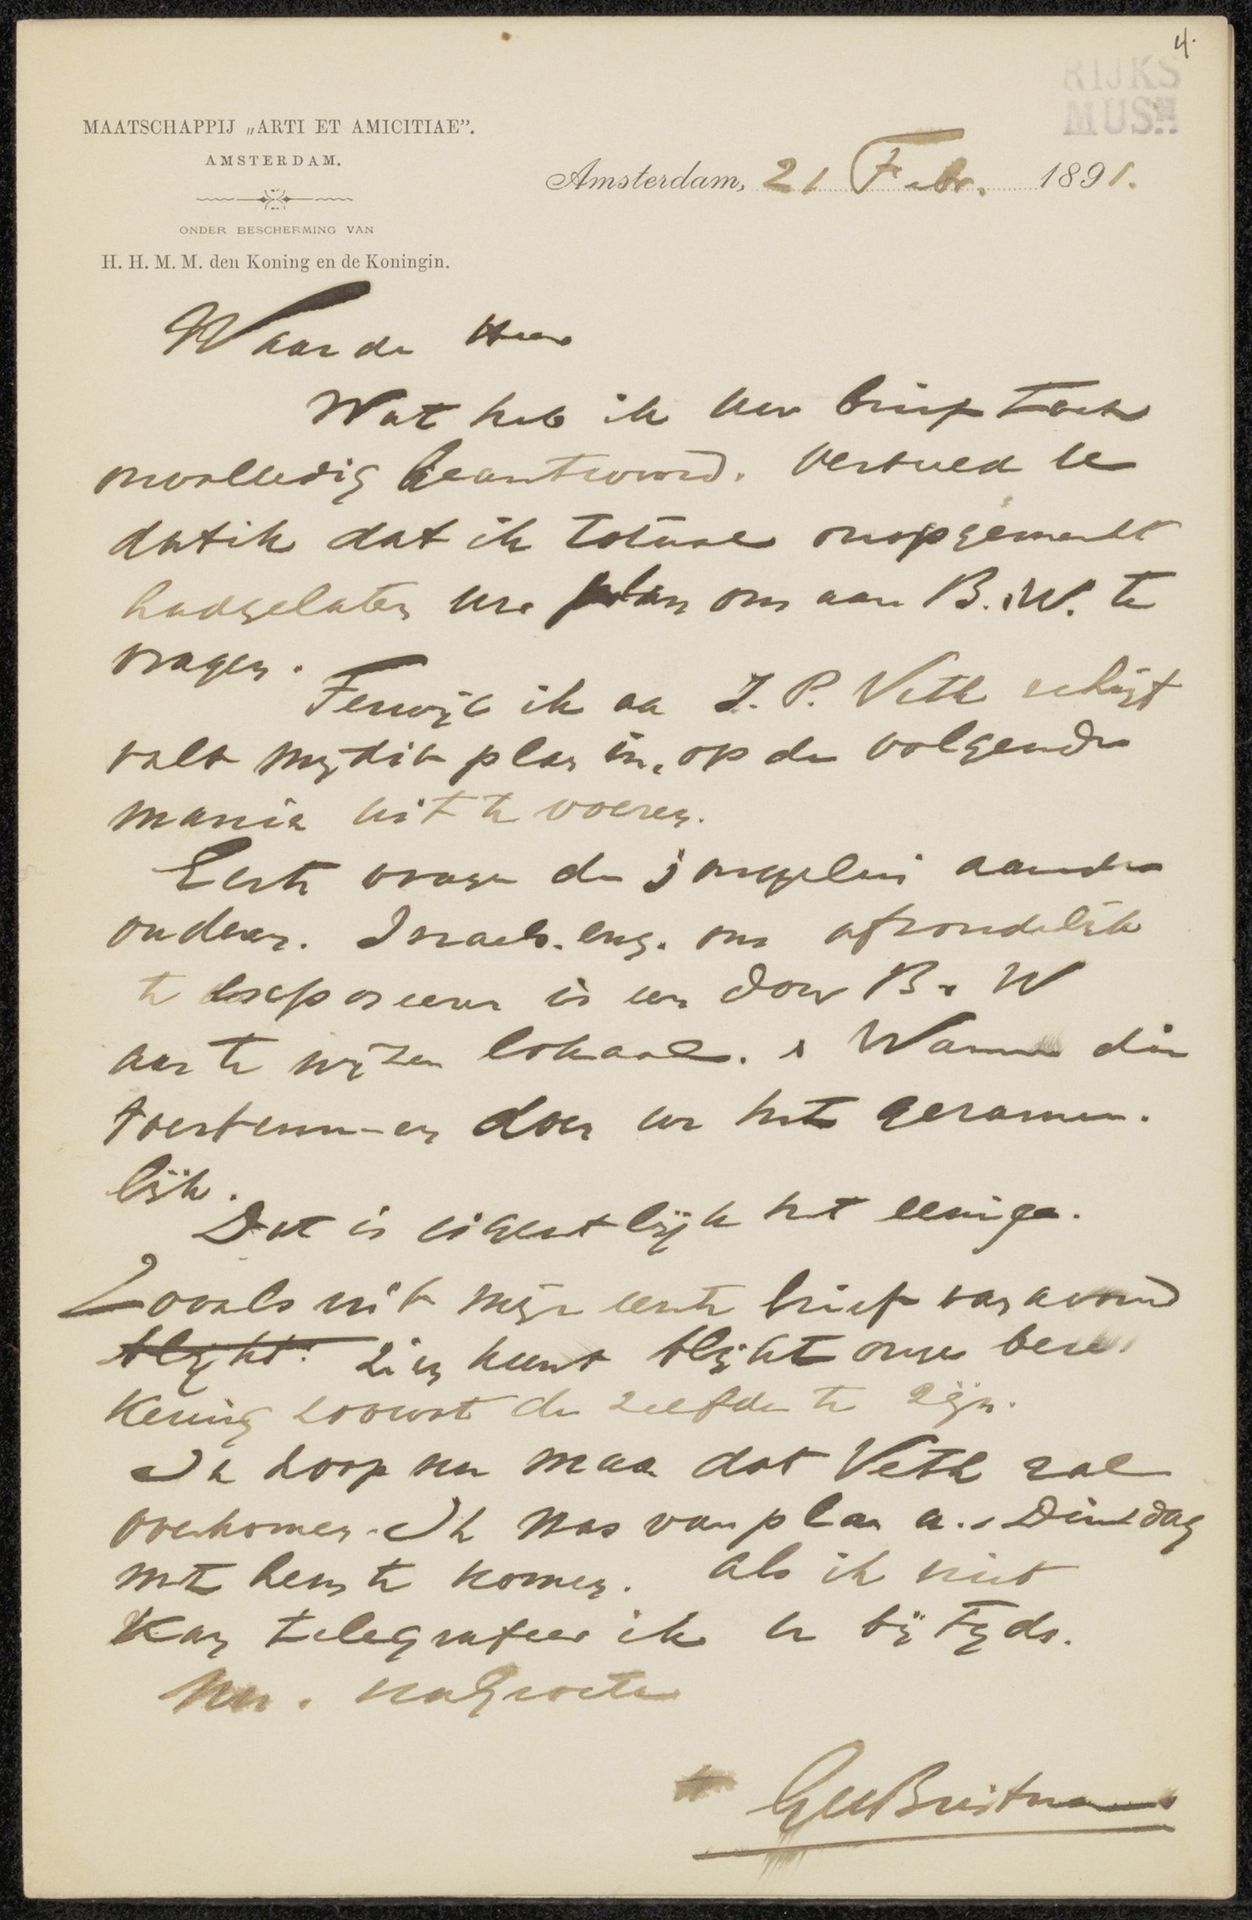 4.
RIJKS
MUSM
MAATSCHAPPIJ „ARTI ET AMICITIAE”.
AMSTERDAM.
ONDER BESCHERMING VAN
H. H. M. M. den Koning en de Koningin.
Amsterdam, 21 Febr. 1891.
Waarde Heer
Wat heb ik uw brief toch
onvolledig beantwoord. verbeed U
datik dat ik totaal onopgemerkt
hadgelaten uw plan om aan B. & W. te
vragen.
Terwijl ik aa J. P. Veth schrijf
valt mij dit plan in, op de volgende
manier uit te voeren.
Eerst vragen de jongelui aan de
ouderen. Israels. enz. om afzonderlijk
te exposeeren in een door B. & W
aan te wijzen lokaal. & Wanneer die
toestemmen doen we het gezamen.
lijk.
Dat is eigentlijk het eenige.
Zooals uit mijn eerste brief van avond
blijkt. zien kunt blijkt onze bere
kening zoowat de zelfde te zijn.
Ik hoop nu maar dat Veth zal
overkomen. Ik was van plan a. s Dinsdag
met hem te komen. als ik niet
kan telegrafeer ik U bij tijds.
Na groete
GHBreitner